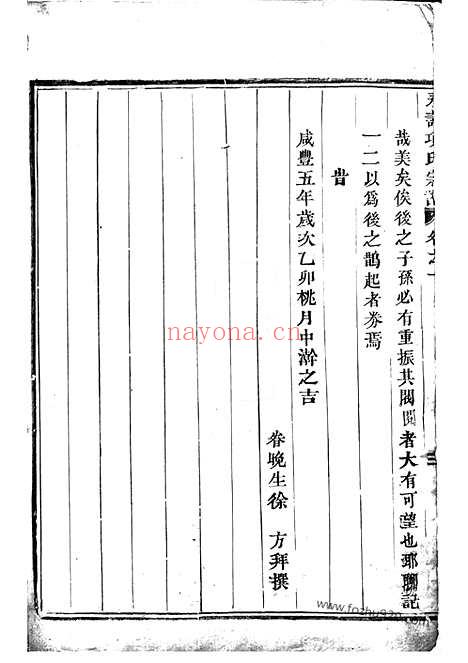 項氏宗譜
卷之一
哉美矣俟後之子孫必有重振其閥閱者大有可望也耶聊記
一二以為後之鵲起者券焉
旹
咸豐五年歲次乙卯桃月中澣之吉
眷晚生徐方拜撰
nayona.cn
www.fozhu920.com